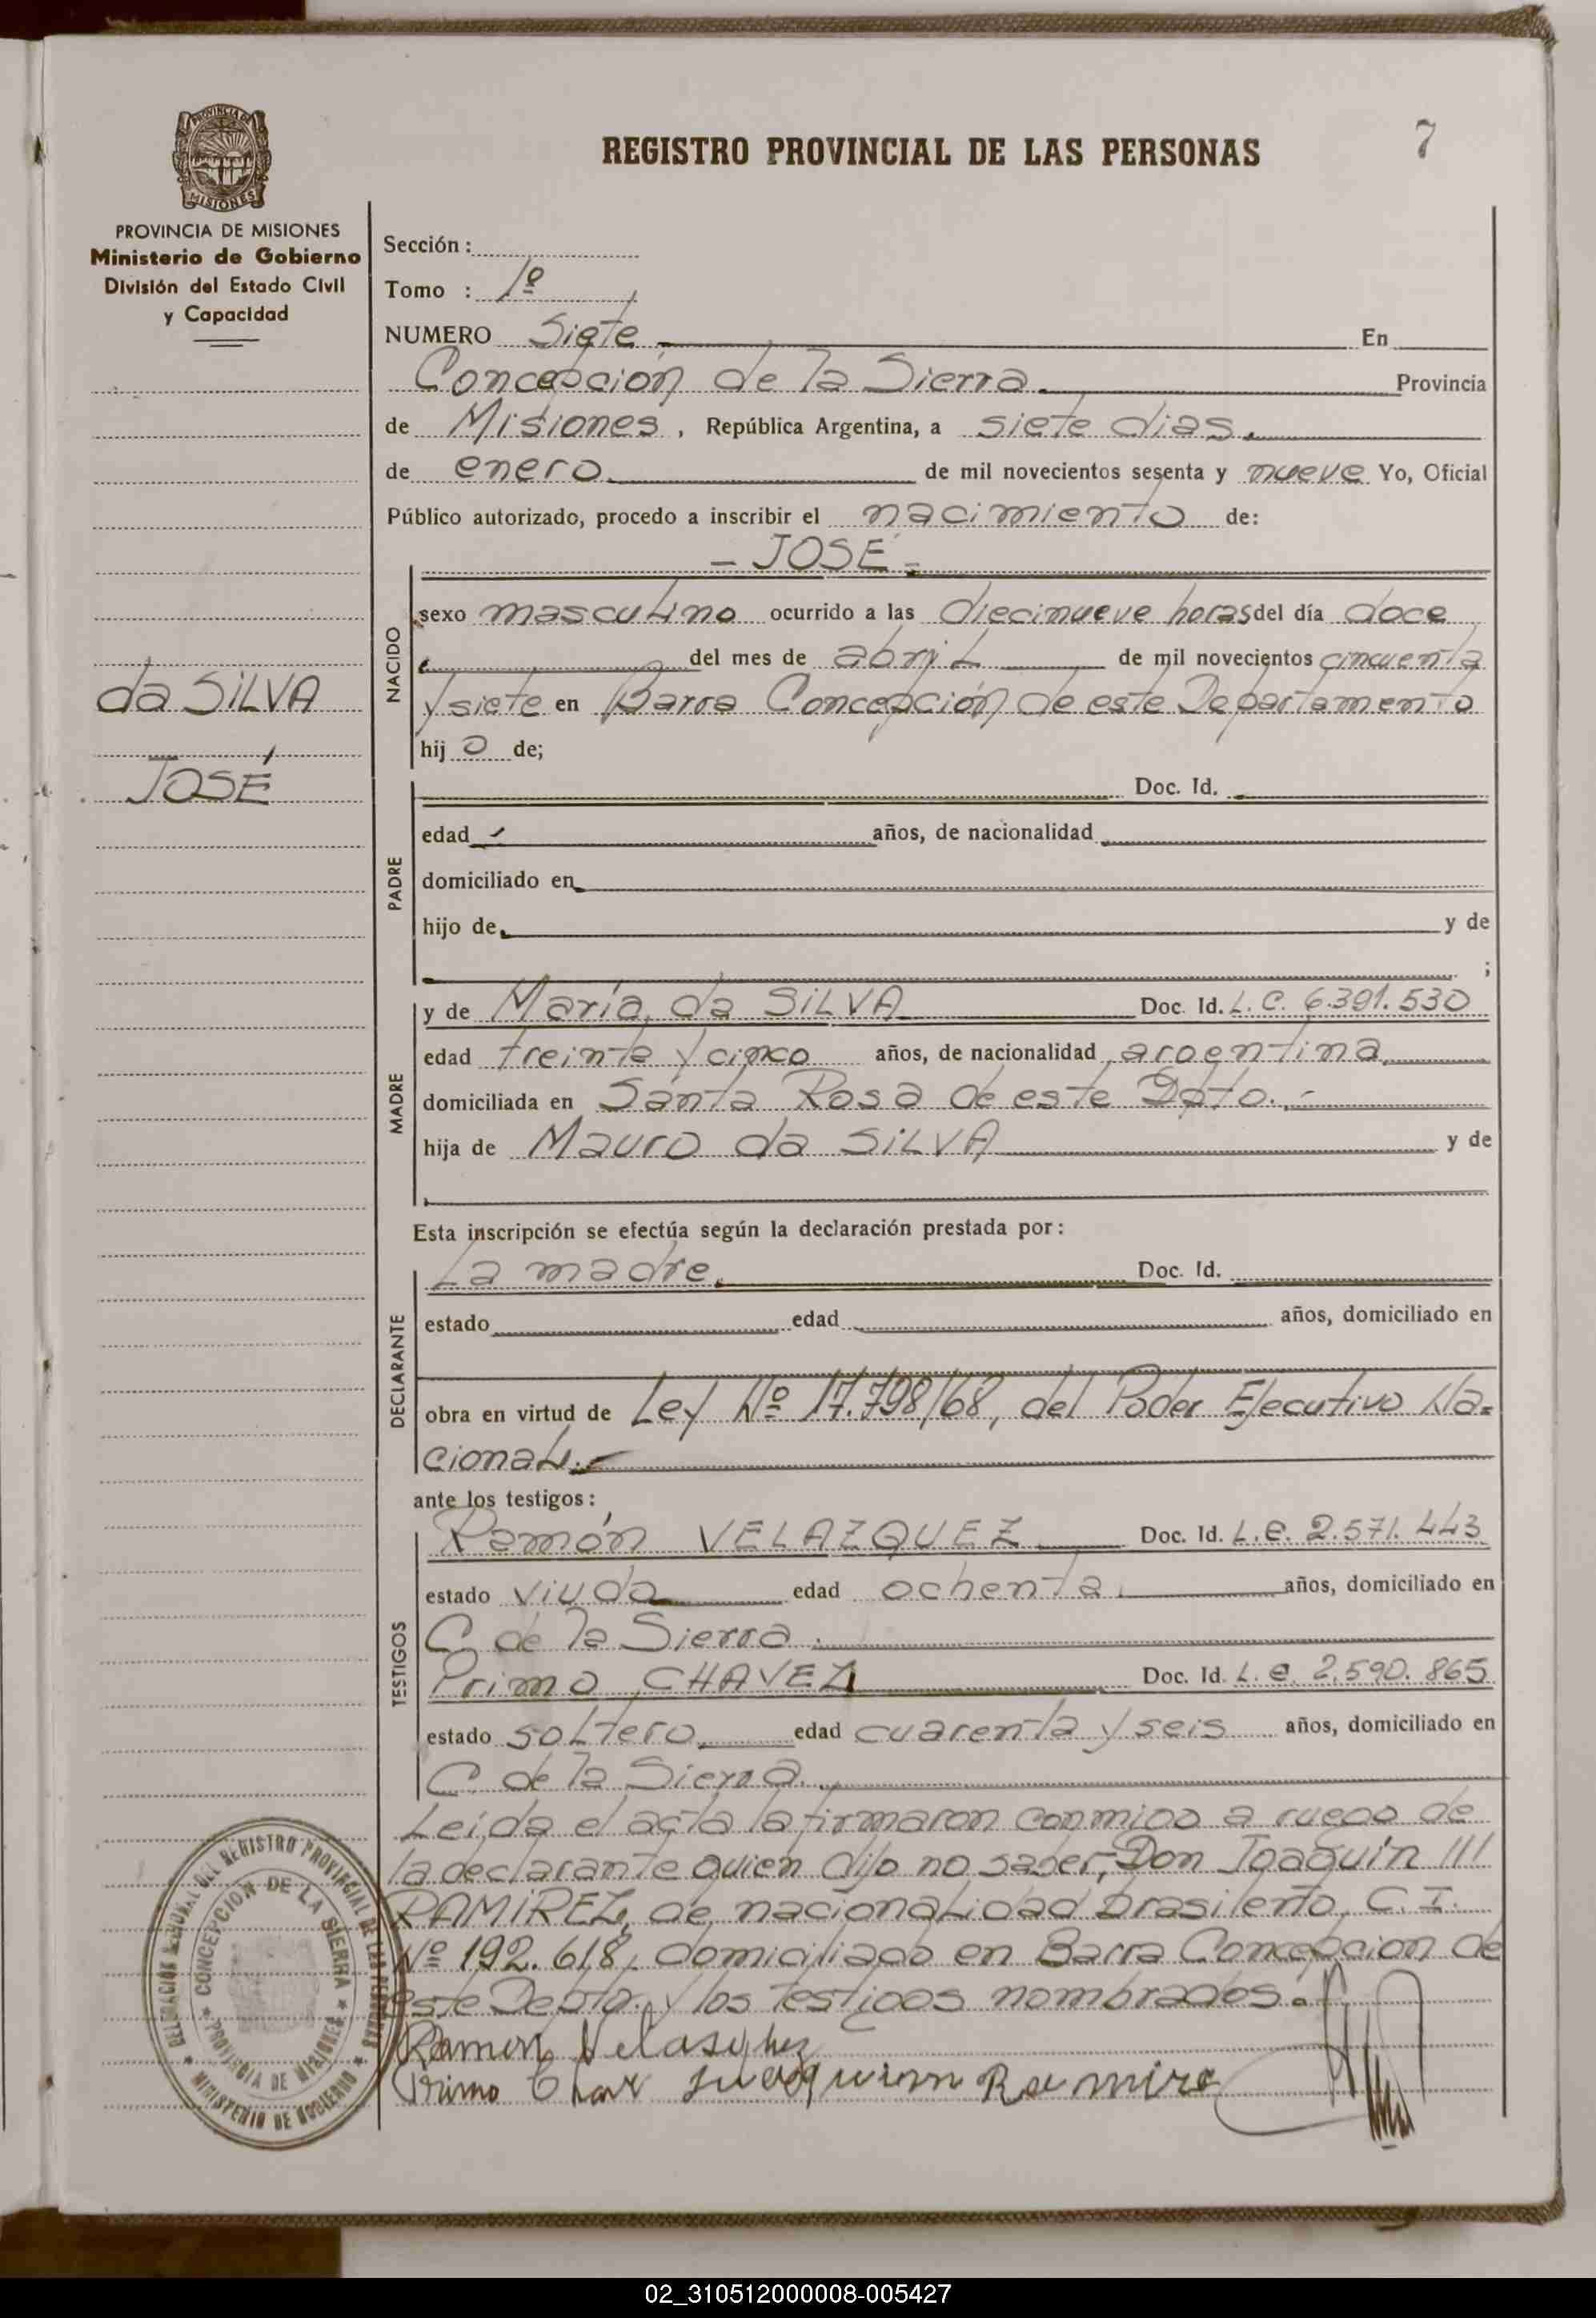 7
REGISTRO PROVINCIAL DE LAS PERSONAS
PROVINCIA DE MISIONES
Ministerio de Gobierno
División del Estado Civil
y Capacidad
da SILVA
JOSÉ
Sección:
Tomo : 1º
NUMERO Siete. En
Concepción de la Sierra. Provincia
de Misiones, República Argentina, a siete dias.
de enero. de mil novecientos sesenta y nueve Yo, Oficial
Público autorizado, procedo a inscribir el nacimiento de:
- JOSÉ -
NACIDO
sexo masculino ocurrido a las diecinueve horas del día doce
del mes de abril de mil novecientos cincuenta
y siete en Barra Concepción de este Departamento
hijo de;
PADRE
Doc. Id.
edad años, de nacionalidad
domiciliado en
hijo de y de
;
MADRE
y de María da SILVA Doc. Id. L. C. 6.391.530
edad treinta y cinco años, de nacionalidad argentina.
domiciliada en Santa Rosa de este Dpto.-
hija de Mauro da SILVA y de
Esta inscripción se efectúa según la declaración prestada por:
DECLARANTE
La madre. Doc. Id.
estado edad años, domiciliado en
obra en virtud de Ley Nº 17.798/68, del Poder Ejecutivo Na=
cional.-
ante los testigos:
TESTIGOS
Ramón VELAZQUEZ Doc. Id. L.e. 2.571.443
estado viudo edad ochenta. años, domiciliado en
C. de la Sierra.
Primo CHAVEZ Doc. Id. L.e. 2.590.865
estado soltero edad cuarenta y seis años, domiciliado en
C. de la Sierra.
Leída el acta la firmaron conmigo a ruego de
la declarante quien dijo no saber, Don Joaquín ///
RAMIREZ, de nacionalidad brasileño, C.I.
Nº 192.618, domiciliado en Barra Concepcion de
este Depto. y los testigos nombrados.
Ramon Velasquez
Primo Chav Juaquim Ramire
DEL REGISTRO PROVINCIAL DE LAS PERSONAS
MINISTERIO DE GOBIERNO
CONCEPCION DE LA SIERRA
PROVINCIA DE MISIONES
02_310512000008-005427